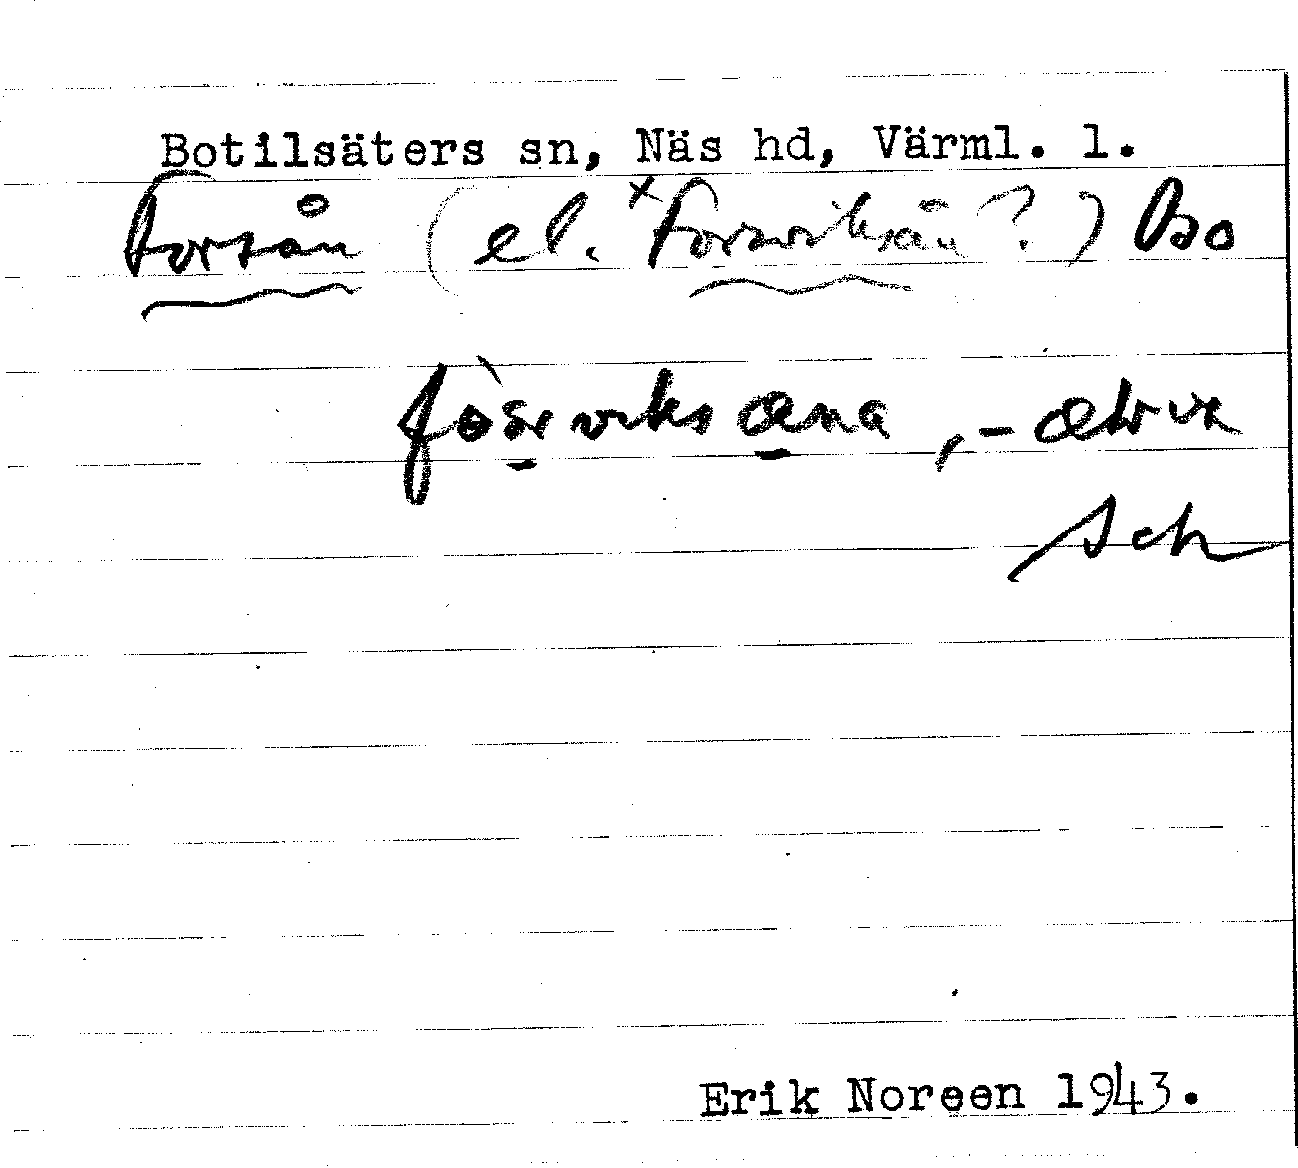 Botilsäters sn, Näs hd, Värml. l.
Forsån (el. ×Forsviksån?) Bo
Sch
Erik Noreen 1943.